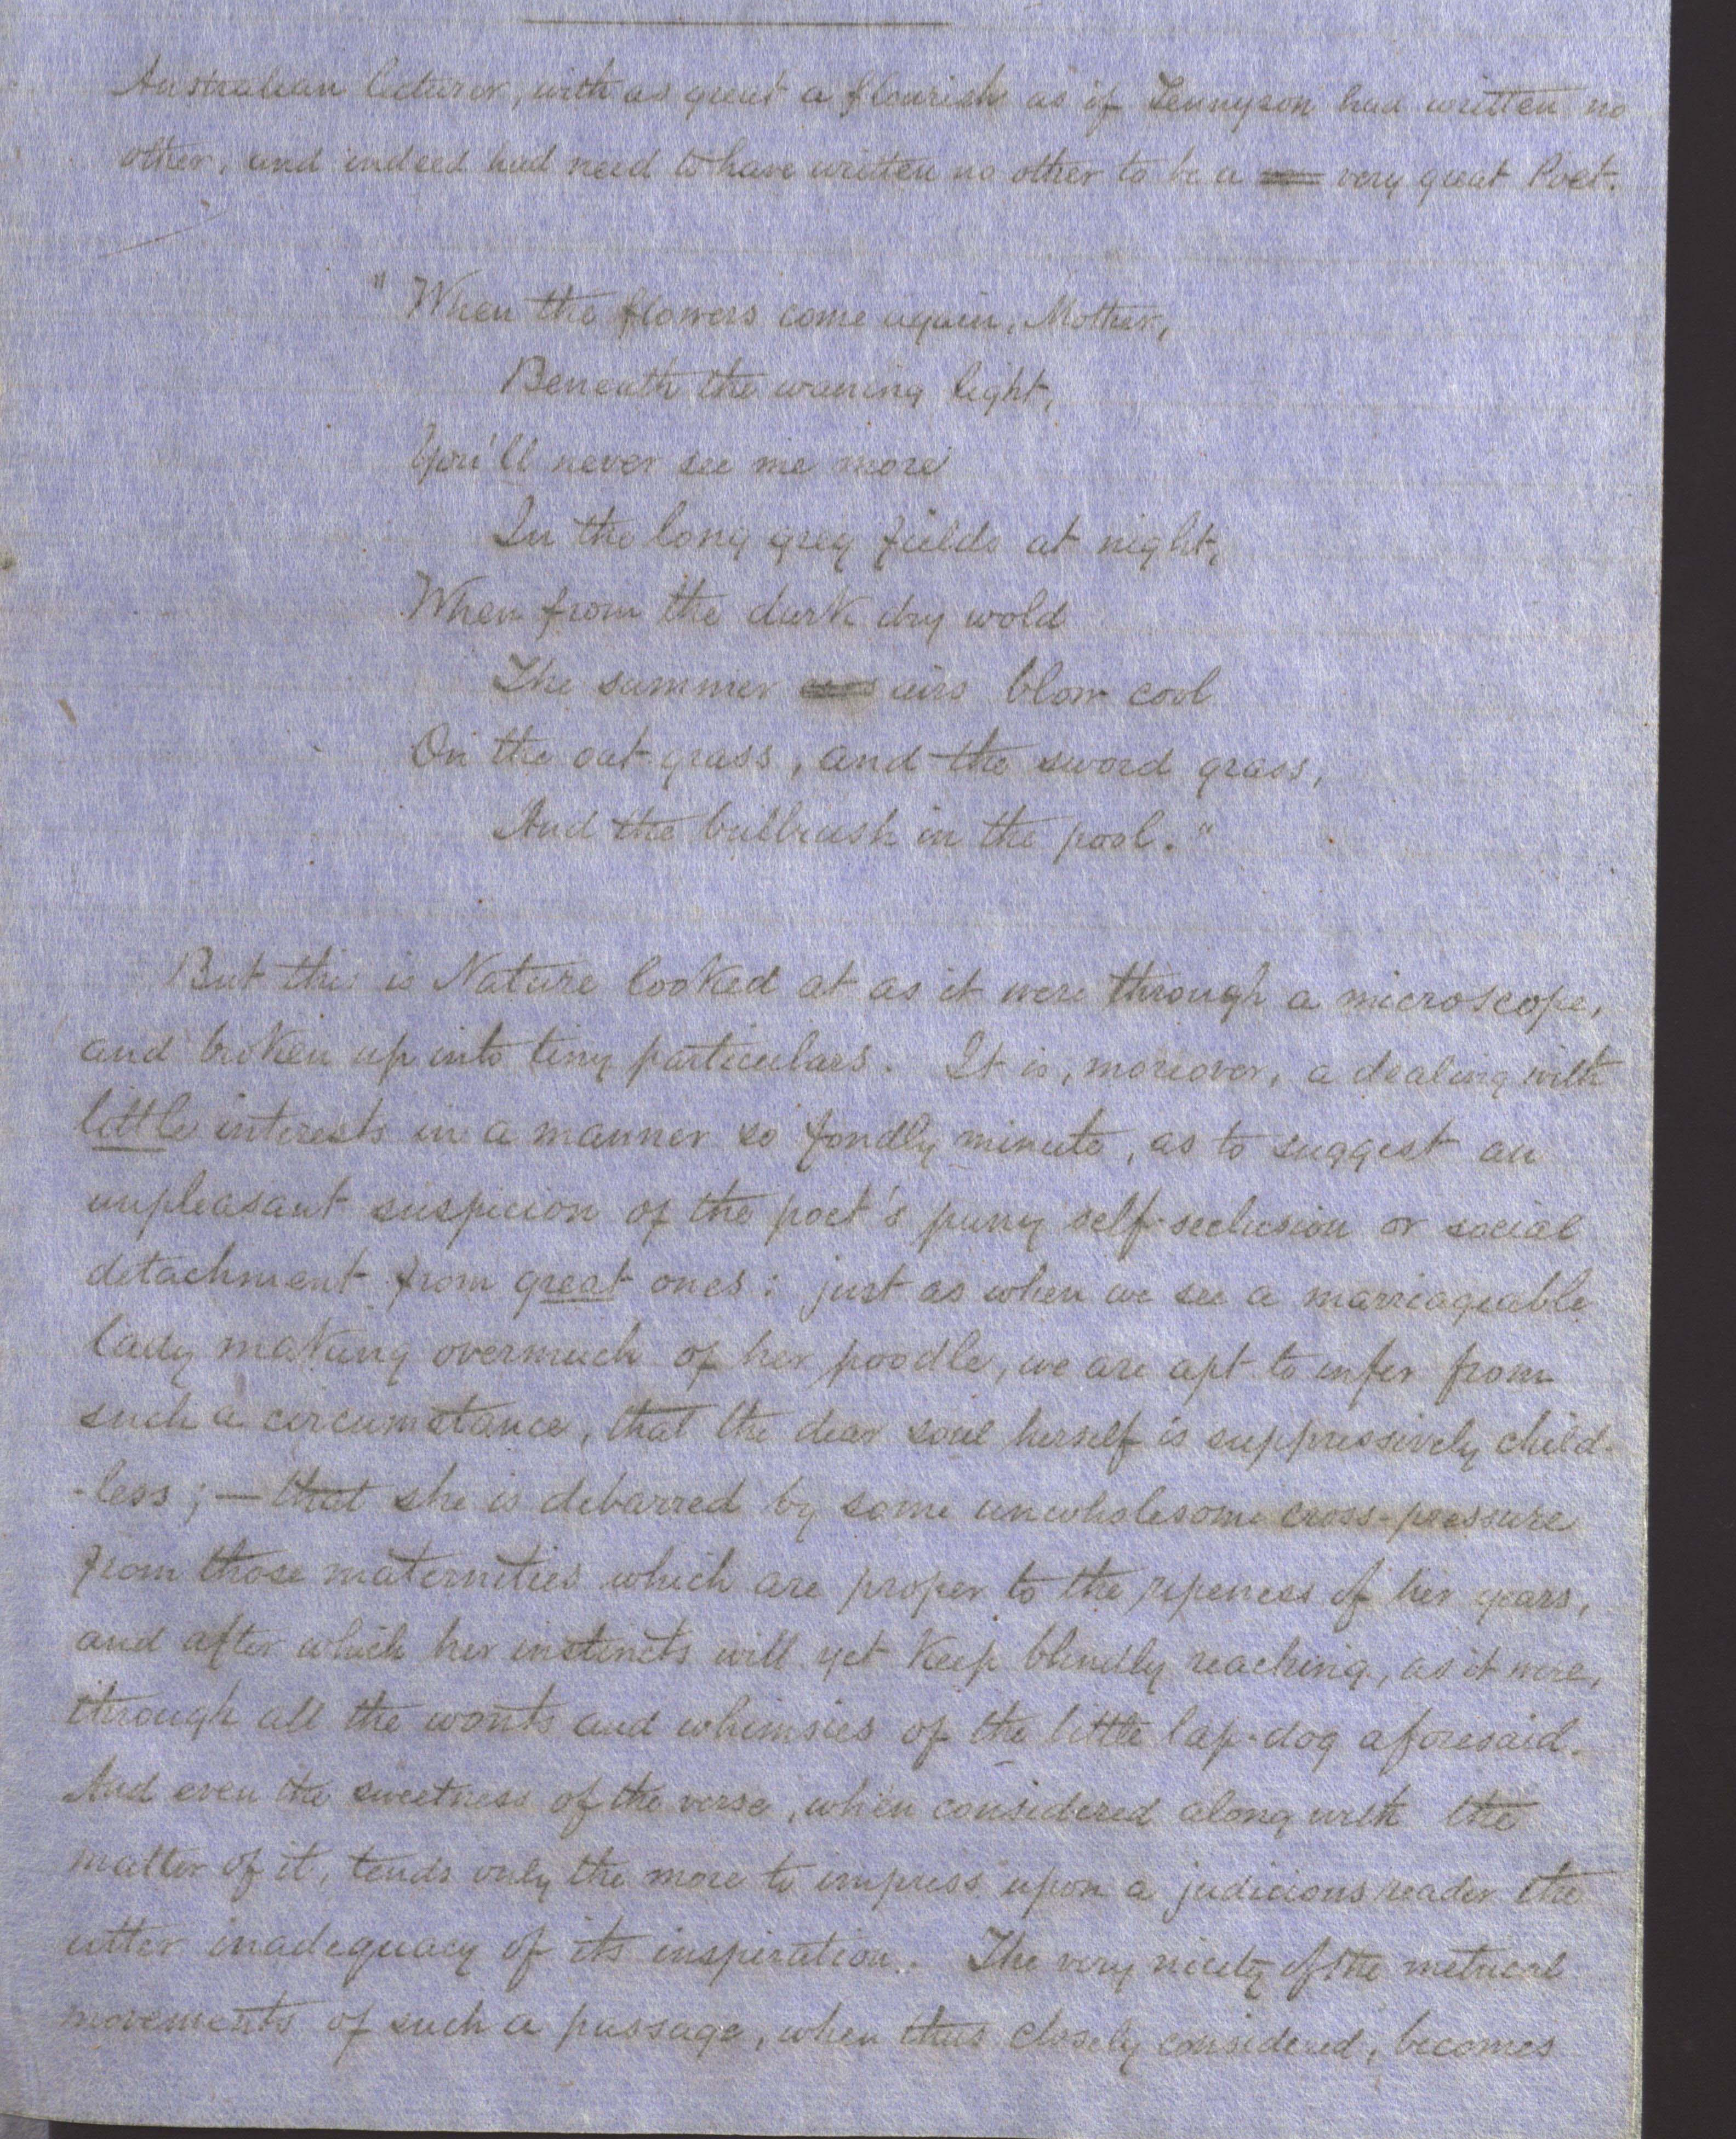 Australian lecturer, with as great a flourish as if Tennyson had written no
other, and indeed had need to have written no other to be a very great Poet.
"When the flowers come again, Mother,
Beneath the waning light,
You'll never see me more
In the long grey fields at night,
When from the dark dry wold
The summer airs blow cool
On the oat-grass, and the sword grass,
And the bullrush in the pool."
But this is Nature looked at as it were through a microscope,
and broken up into tiny particulars. It is, moreover, a dealing with
little interests in a manner so fondly minute, as to suggest an
unpleasant suspicion of the poet's puny self-seclusion or social
detachment from great ones: just as when we see a marriageable
lady making overmuch of her poodle, we are apt to infer from
such a circumstance, that the dear soul herself is suppressively child-
-less; — that she is debarred by some unwholesome cross-pressure
from those maternities which are proper to the ripeness of her years,
and after which her instincts will yet keep blindly reaching, as it were,
through all the wonts and whimsies of the little lap-dog aforesaid.
And even the sweetness of the verse, when considered along with the
matter of it, tends only the more to impress upon a judicious reader the
utter inadequacy of its inspiration. The very nicety of the metrical
movements of such a passage, when thus closely considered, becomes